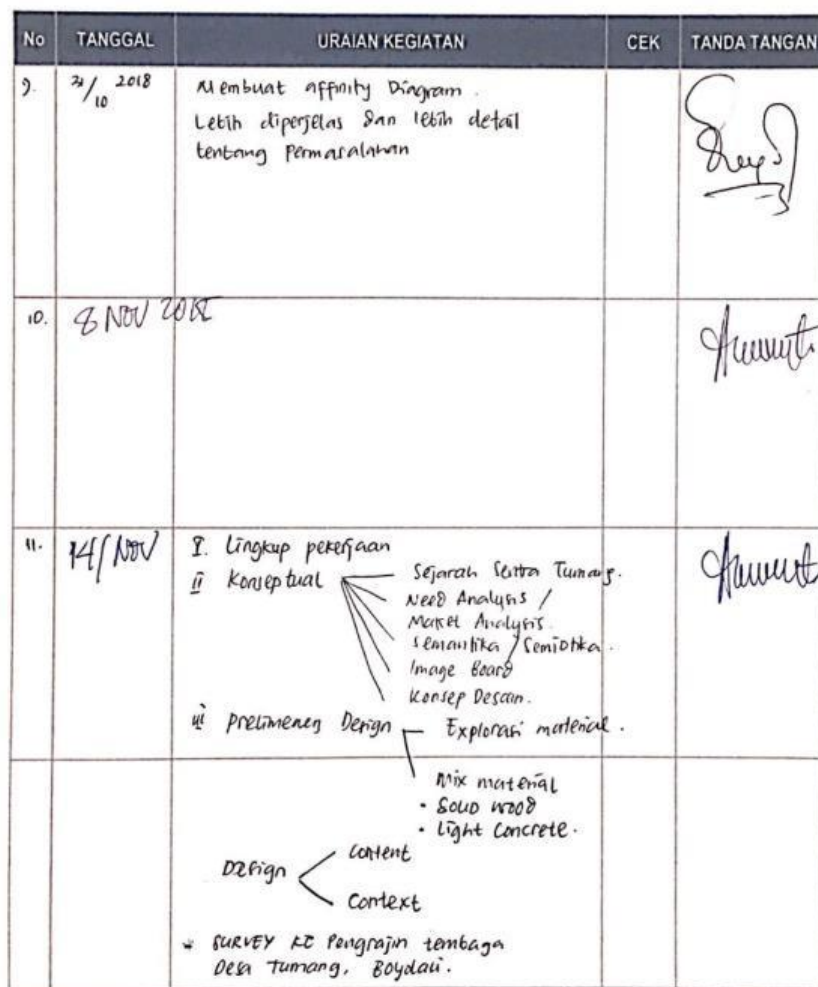 No TANGGAL URAIAN KEGIATAN CEK TANDA TANGAN
9. 10 2018 Membuat affinity Diagram.
Lebih diperjelas dan lebih detail
tentang Permasalahan
10. 8 NOV 2018
11. 14/NOV I. Lingkup pekerjaan
ii Konseptual Sejarah Sentra Tumang.
Need Analysis /
Market Analysis.
Semantika / Semiotika.
Image Board
Konsep Desain.
iii Prelimenery Design Explorasi material.
Mix material
• Solid wood
• Light Concrete.
Design Content
Context
* SURVEY KE Pengrajin tembaga
Desa Tumang, Boyolali.